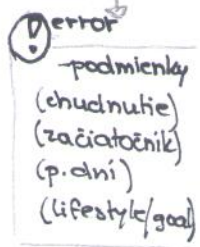 ! error
-podmienky
(chudnutie)
(začiatočník)
(p.dní)
(lifestyle/goal)